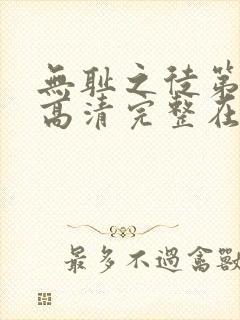 無耻之徒第
高清完整在
最多不過禽獸